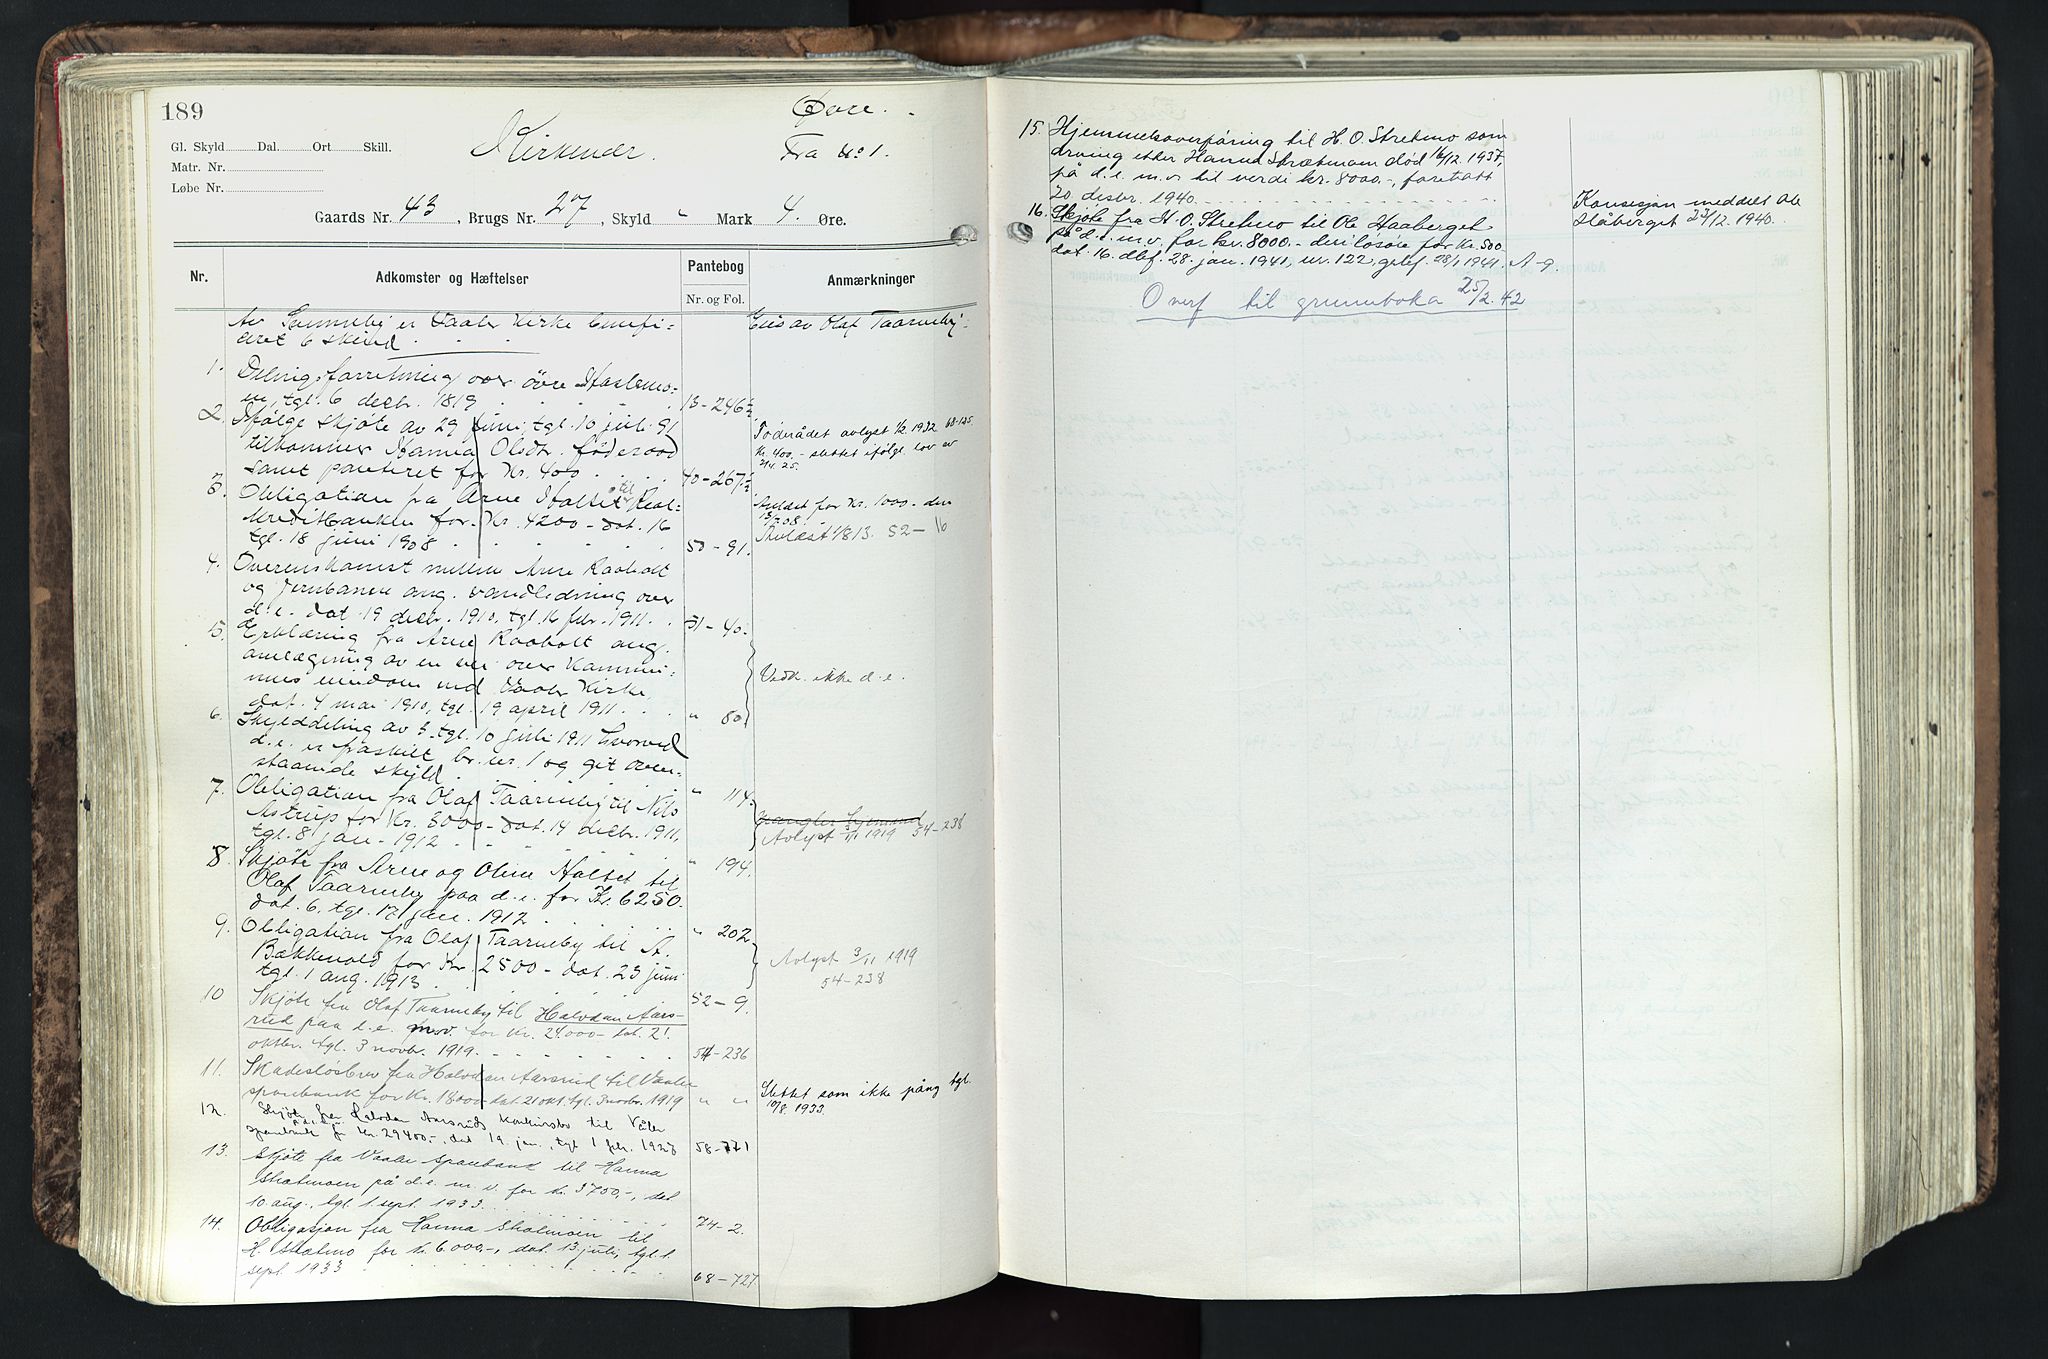 189
Øvre.
Gl. Skyld Dal. Ort Skill.
Kirkenær.
Fra No 1.
Matr. Nr.
Løbe Nr.
Gaards Nr. 43, Brugs Nr. 27, Skyld " Mark 4 Øre.
Nr. Adkomster og Hæftelser Pantebog Anmærkninger
Nr. og Fol.
Av er Vaaler Kirke benefi-
ceret 6 skind
Eies av Olaf Taarneby.
1. Delingsforretning over øvre
tgl. 6 decbr. 1819 13-246½
2. Ifølge skjøte av 29 juni, tgl. 10 juli 91
tilkommer Hanna Olsdtr. föderaad
samt panteret for Kr. 400 40-267½
Föderådet avlyst 1932 68-125.
Kr. 400,- slettet ifølge lov av
25.
3. Obligation fra Arne Holset til Real-
kreditbanken for Kr. 4200 - dat. 16
tgl. 18 juni 1908 50-91.
for Kr. 1000 - den
08.
52-16
4. Overenskomst mellem Arne Raaholt
og Jernbanen ang. vandledning over
d. e. dat 19 decbr. 1910, tgl. 16 febr. 1911. 51-40.
5. Erklæring fra Arne Raaholt ang.
anlægning av en vei over Kommu-
nens eiendom ved Vaaler Kirke,
dat. 4 mai 1910, tgl. 19 april 1911. " 80
Vedk. ikke d.e.
6. Skylddeling av tgl. 10 juli 1911 hvorved
d.e. er fraskilt br. nr. 1 og git oven-
staaende skyld " 114.
7. Obligation fra Olaf Taarneby til Nils
Astrup for Kr. 3000 - dat. 14 decbr. 1911,
tgl. 8 jan. 1912 " 194.
mangler hjemmel
Avlyst 3/11 1919 54-238
8. Skjøte fra Arne og Oline Holset til
Olaf Taarneby paa d.e. for Kr. 6250.
dat. 6, tgl. 17 jan. 1912 " 202
9. Obligation fra Olaf Taarneby til A.
Bækkevold for Kr. 2500 - dat. 23 juni
tgl. 1 aug. 1913 52-9.
Avlyst 3/11 1919
54-238
10 Skjöte fra Olaf Taarneby til Halvdan Aars-
rud paa d.e. m.v. for Kr. 24000 - dat. 21
oktbr. tgl. 3 novbr. 1919. 54-236
11. Skadesløsbrev fra Halvdan Aarsrud til Vaaler
sparebank for Kr. 18000 dat. 21 okt. tgl. 3 novbr. 1919 " "
Slettet som ikke pång tgl.
10/8. 1933.
12. Skjöte fra Halvdan Aarsruds konkursbo til Våler
sparebank for Kr. 29400,-, dat 19. jan., tgl 1 febr. 1928 58-771
13. Skjöte fra Vaaler sparebank til Hanna
Skatmoen på d.e. m.v. for Kr. 3700,-, dat
10 aug., tgl. 1. sept. 1933. 74-2.
14. Obligasjon fra Hanna Skatmoen til
H. Skatmo for Kr. 6.000,-, dat. 13. juli, tgl. 1.
sept. 1933 68-727.
15. Hjemmelsoverföring til H. O. Stretmo som
arving etter Hanna Strætmoen död 16/12 1937,
på d.e. m.v. til verdi kr. 8000.-, foretatt
20. desbr. 1940.
16. Skjöte fra H. O. Stretmo til Ole Haaberget
på d.e. m.v. for kr. 8000.- den lösöre for Kr. 500
dat. 16. dbf. 28. jan. 1941, nr. 122, 28/1 1941. A-9.
Konsesjon meddelt Ole
Håberget 23/12. 1940.
Overf til grunnboka 25/2. 42